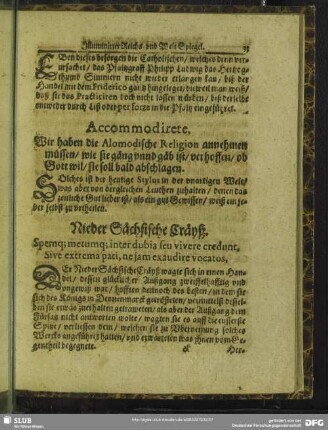 Illuminirter Reichs- vnd Welt-Spiegel. 33
EBen dieses besorgen die Catholischen/ welches denn ver-
vrsachet/ das Pfaltzgraff Philipp Ludwig das Hertzog-
thumb Simmern nicht wieder erlangen kan/ biß der
Handel mit dem Friderico gantz hingeleget, die weil man weiß/
daß sie das Practiciren doch nicht lassen
entweder durch List oder per forze in die Pfaltz eingesetzet.
Accommodirete,
Wir haben die Alamodische Religion annehmen
müssen/ wie sie gäng vnnd gäb ist/ verhoffen/ ob
Gott wil/ sie soll bald abschlagen.
SOlches ist der heutige Stylus in der vntrewigen Welt/
was aber von dergleichen Leuthen zuhalten/ denen das
zeitliche Gut lieber ist/ als ein gut Gewissen/ weiß ein je-
der selbst zu vrtheilen.
Nieder Sächsische Cräyß,
Spemq; metumq; inter dubia seu vivere credunt,
Sive extrema pati, ne jam exaudire vocatos,
DEr Nieder Sächsische Cräyß wagte sich in einen Han-
del/ dessen glücklicher Außgang zweiffelhafftig und
vngewiß war/ hofften dennoch des Besten/ in dem sie
sich des Königs in Dennemarck getrösteten/ vermeinend
sen sie etwas zuerhalten getraweten/ als aber der Außgang dem
Fürsatz nicht antworten wolte/ wagten sie es auff die eusserste
Spitze/ verliessen den/ welchen sie zu Vbernemung solches
Wercks angeführet hatten/ vnd erwarteten was jhnen vom Ge-
gentheil begegnete.
Her-
SLUB
Wir führen Wissen.
http://digital.slub-dresden.de/
gefördert von der
Deutschen Forschungsgemeinschaft
DFG